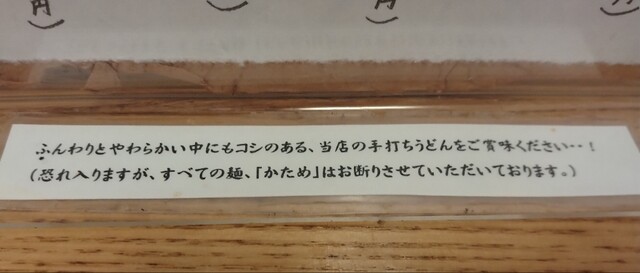 円)
)
円)
)
ふんわりとやわらかい中にもコシのある、当店の手打ちうどんをご賞味ください‥!
(恐れ入りますが、すべての麺、「かため」はお断りさせていただいております。)